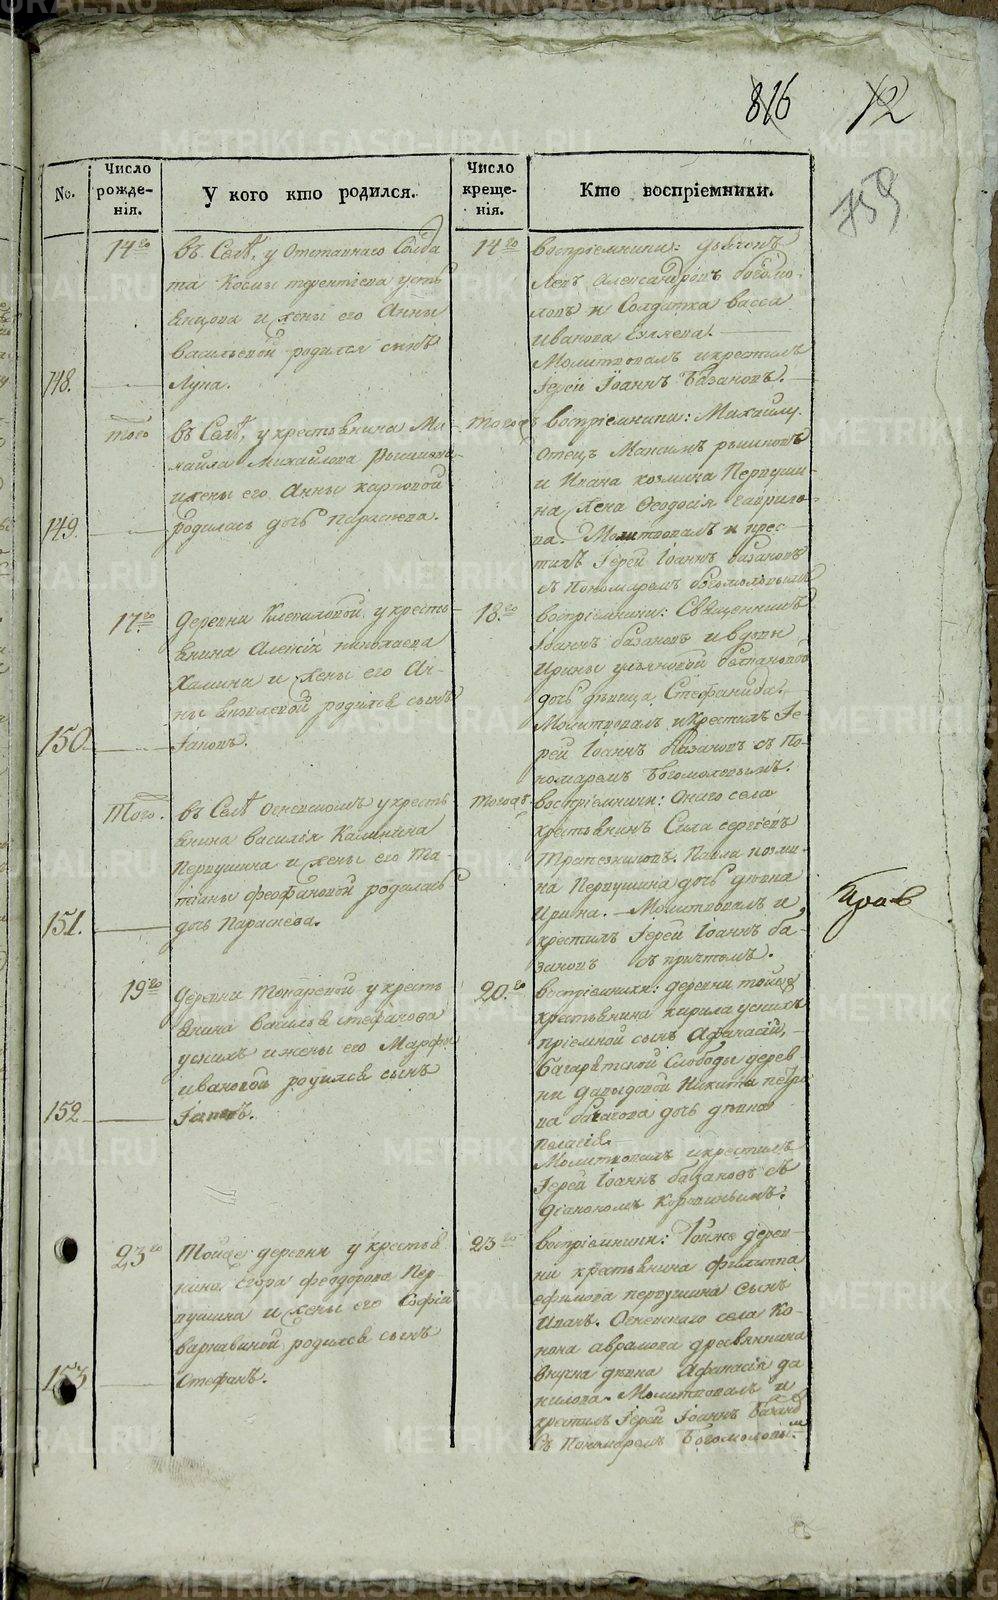 816 12
759
No.
Число рожде-нія.
У кого кто родился.
Число креще-нія.
Кто воспріемники.
14го
въ Селѣ, у Отставнаго Солда
та Космы терентіева усть
янцова и жены его Анны
васильевой родился сынъ
148.
Лука.
14го
воспріемники: дьячекъ
Левъ Александровъ богомо-
ловъ и Солдатка васса
иванова
Молитвовалъ и крестилъ
Іерей Іоаннъ Базановъ.
того
въ Селѣ, у крестьянина Ми
хайла Михайлова
и жены его Анны карповой
149.
родилась дочь Параскева.
тогож
воспріемники: Михайлу
отецъ Максимъ
и Ивана козмина Первуши-
на Жена Ѳеодосія гаврило-
ва. Молитвовалъ и крес-
тилъ Іерей Іоаннъ базановъ
съ Пономаремъ богомоловымъ
17го
Деревни Клепиловой, у кресть
янина Алексія николаева
Халина и Жены его Ан-
ны яковлевой родился сынъ
150.
Іаковъ.
18го
воспріемники: Священникъ
Іоаннъ базановъ и вдовы
Ирины
дочь дѣвица Стефанида.
Молитвовалъ и Крестилъ Іе-
рей Іоаннъ Базановъ съ По-
номаремъ Богомоловымъ.
Того.
въ Селѣ Огневскомъ у кресть
янина василія Калинина
Первушина и жены его Та-
тіаны феофановой родилась
151.
дочь Параскева.
тогож
воспріемники: Онаго села
крестьянинъ Сила сергѣевъ
Трапезниковъ. Павла козми-
на Первушина дочь дѣвка
Ирина. Молитвовалъ и
крестилъ Іерей Іоаннъ ба-
зановъ съ причтомъ.
19го
Деревни Токаревой у кресть
янина василья стефанова
ускихъ и жены его Марфы
ивановой родился сынъ
152
20.го
воспріемники: деревни тойже
крестьянина кирила ускихъ
пріемной сынъ Афанасій,
багаряцкой Слободы дерев
ни давыдовой Никиты петро
ва дочь дѣвка
пелагія.
Молитвовалъ и крестилъ
Іерей Іоаннъ базановъ съ
діакономъ
23го
Тойже деревни у крестья
нина Егора феодорова Пер-
вушина и жены его Софіи
варлавиной родился сынъ
153
Стефанъ.
23го
воспріемники: Тойже дерев-
ни крестьянина филиппа
ефимова первушина сынъ
Иванъ. Огневскаго села Ко-
нона аврамова древяннина
внучка дѣвка Афанасія да
нилова. Молитвовалъ и
крестилъ Іерей Іоаннъ Базанов
съ Пономаремъ Богомоловым